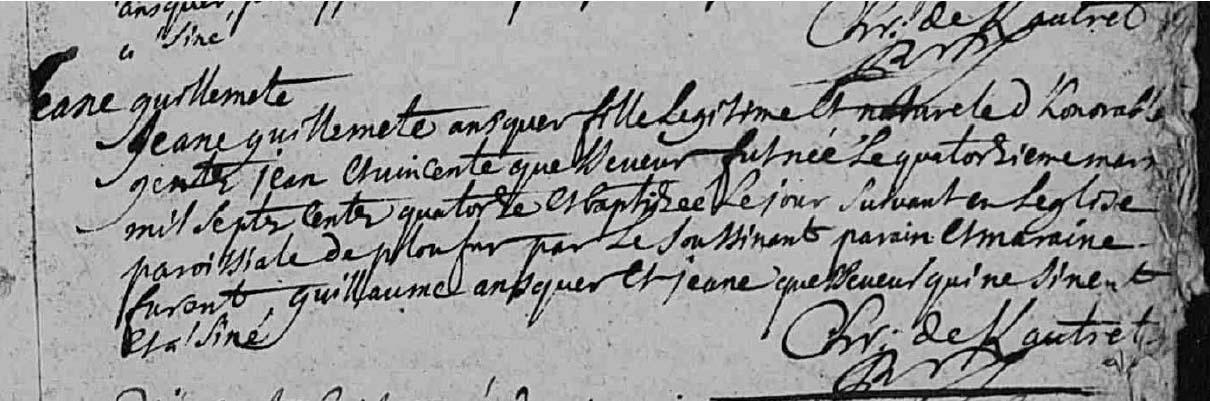 ansquer,
a siné
Chr. de K/autret
Jeane guillemete
Jeane guillemete ansquer fille legitime Et naturele d'honorable
gentz jean Et vincente quelveveur fut née Le quatorzieme mars
mil septz centz quatorze Et baptizee Le jour suivant en Leglise
paroissiale de ploufur par Le soussinant parain Et maraine
furent guillaume ansquer Et jeane quelveveur qui ne sinent
Et a siné
Chr. de K/autret